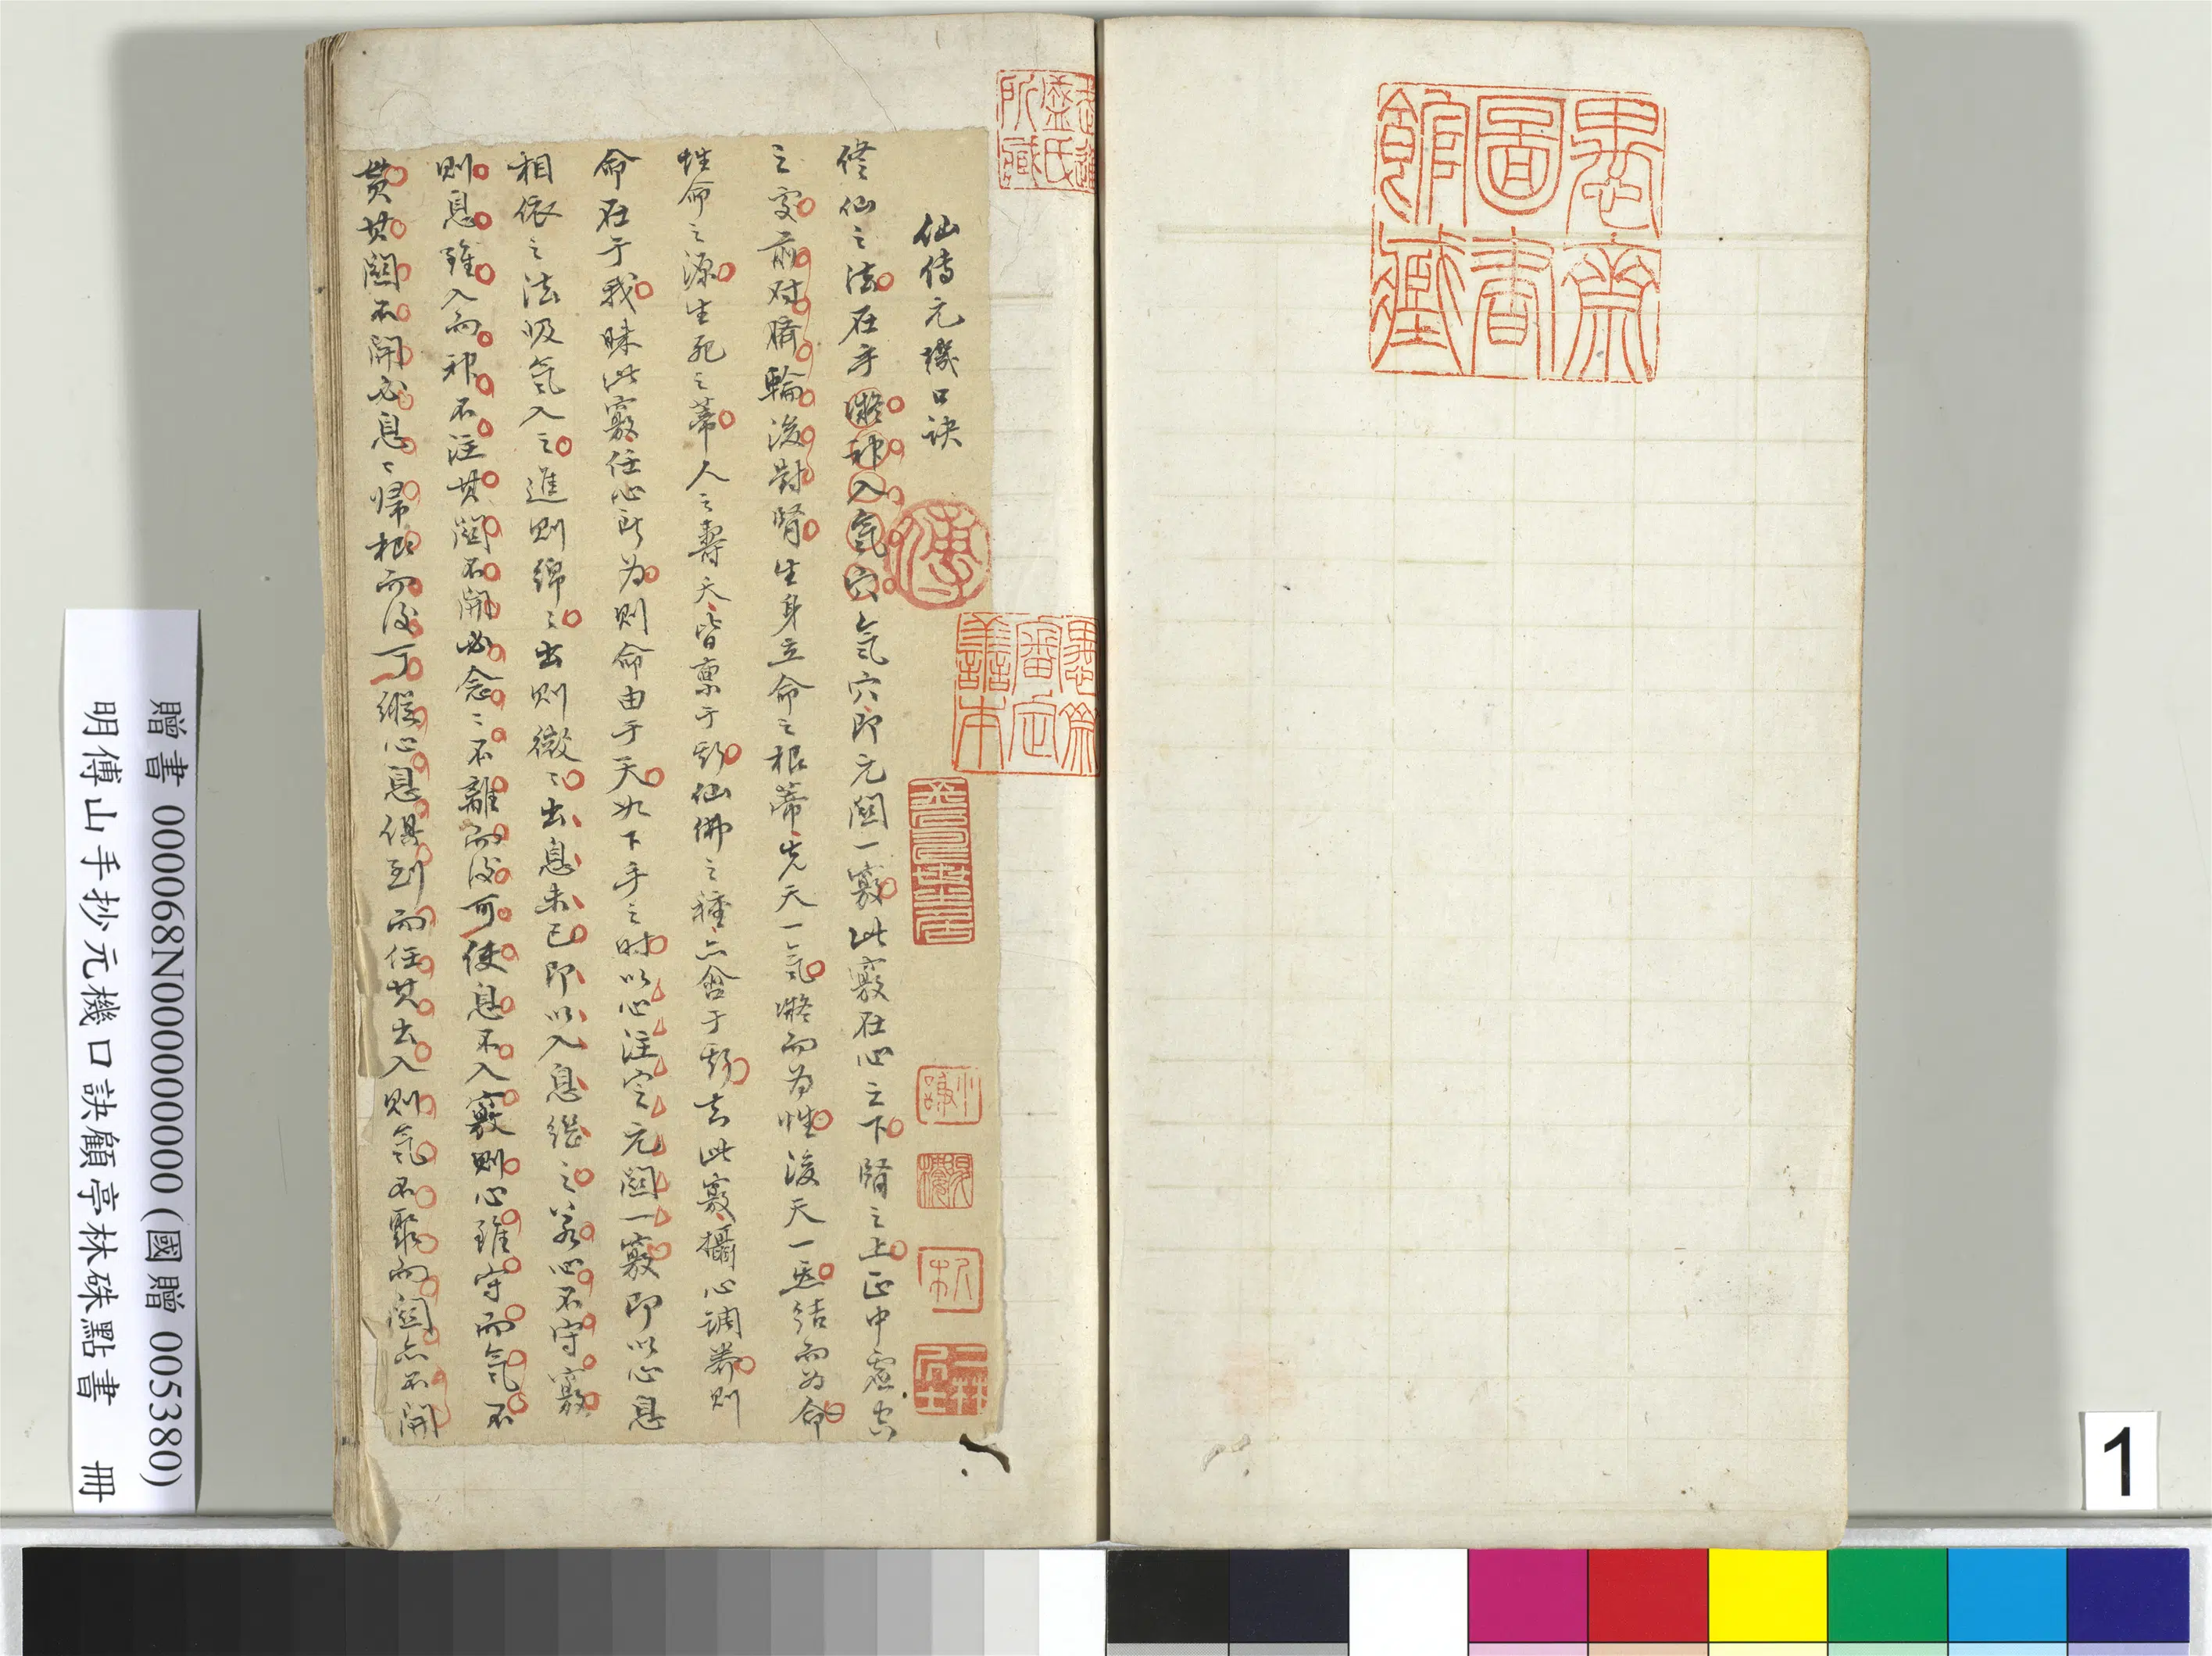 愚齋
圖書
館藏
武進
盛氏
所藏
愚齋
審定
善本
傅
仙傳元機口訣
修仙之法在乎凝神入氣穴氣穴即元關一竅此竅在心之下腎之上正中虛空
之處前对臍輪後對腎生身立命之根蒂先天一氣凝而為性後天一炁結而為命
性命之源生死之蒂人之壽夭皆稟于斯仙佛之種亦含于斯去此竅攝心調養則
命在于我昧此竅任心所为則命由于天如下手之时以心注定元關一竅即以心息
相依之法吸氣入之進則綿〻出則微〻出息未已即以入息繼之若心不守竅
則息雖入而神不注其關不開必念〻不離而後可使息不入竅則心雖守而氣不
貫其關不開必息〻歸根而後可縱心息俱到而任其出入則氣不聚而關亦不開
贈書 000068N000000000 (國贈 005380)
明傅山手抄元機口訣顧亭林硃點書 冊
1